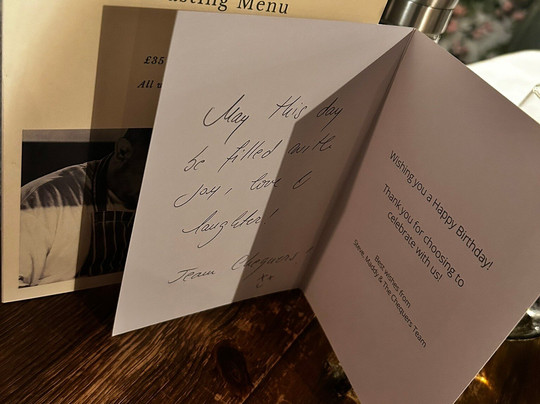 asting Menu
£35
All
May this day
be filled with
Joy, love &
laughter!
Team Chequers!
xx
Wishing you a Happy Birthday!
Thank you for choosing to
celebrate with us!
Best wishes from
Steve, Maddy & The Chequers Team